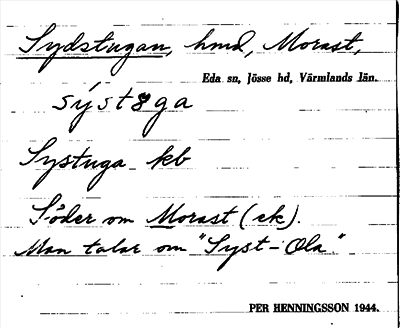 Sydstugan, hmd, Morast,
Eda sn, Jösse hd, Värmlands län.
sýstȣga
Systuga kb
Söder om Morast (ek).
Man talar om "Syst-Ola"
PER HENNINGSSON 1944.